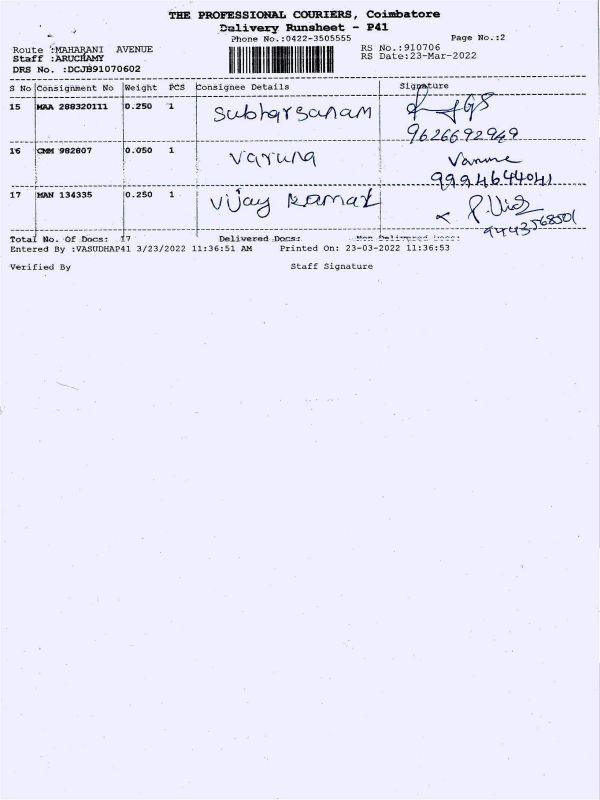 THE PROFESSIONAL COURIERS, Coimbatore
Delivery Runsheet - P41
Phone No.:0422-3505555 Page No.:2
Route :MAHARANI AVENUE RS No.:910706
Staff :ARUCHAMY RS Date:23-Mar-2022
DRS No. :DCJB91070602
S No Consignment No Weight PCS Consignee Details Signature
15 MAA 288320111 0.250 1 Subharsanam
9626692949
16 CMM 982807 0.050 1 Varuna Varuna
9994644041
17 MAN 134335 0.250 1 Vijay Kamal P.Vij
9443568501
Total No. Of Docs: 17 Delivered Docs: Non Delivered Docs:
Entered By :VASUDHAP41 3/23/2022 11:36:51 AM Printed On: 23-03-2022 11:36:53
Verified By Staff Signature